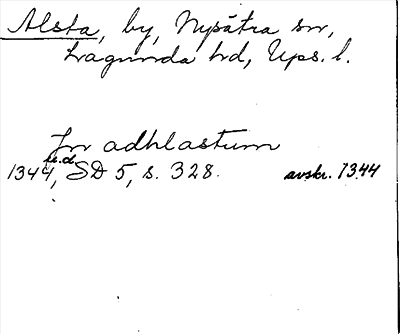 Alsta, by, Nysätra sn,
Lagunda hd, Ups. l.
Jn adhlastum
1344 u.d., SD 5, s. 328. avskr. 1344